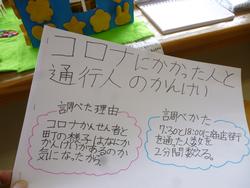 コロナにかかった人と
通行人のかんけい
調べた理由
コロナかんせん者と
町の様子はなにか
かんけいがあるのか
気になったから。
調べかた
7:30と18:00に商店街
を通った人数を
2分間数える。